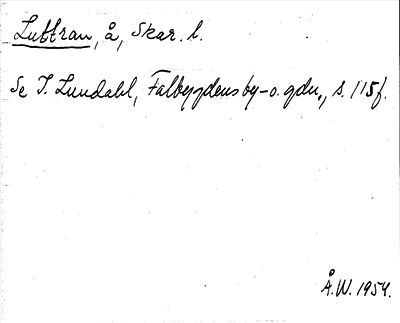 Luttran, å, Skar. l.
Se I. Lundahl, Falbygdens by- o. gdn., s. 115f.
Å.W. 1954.